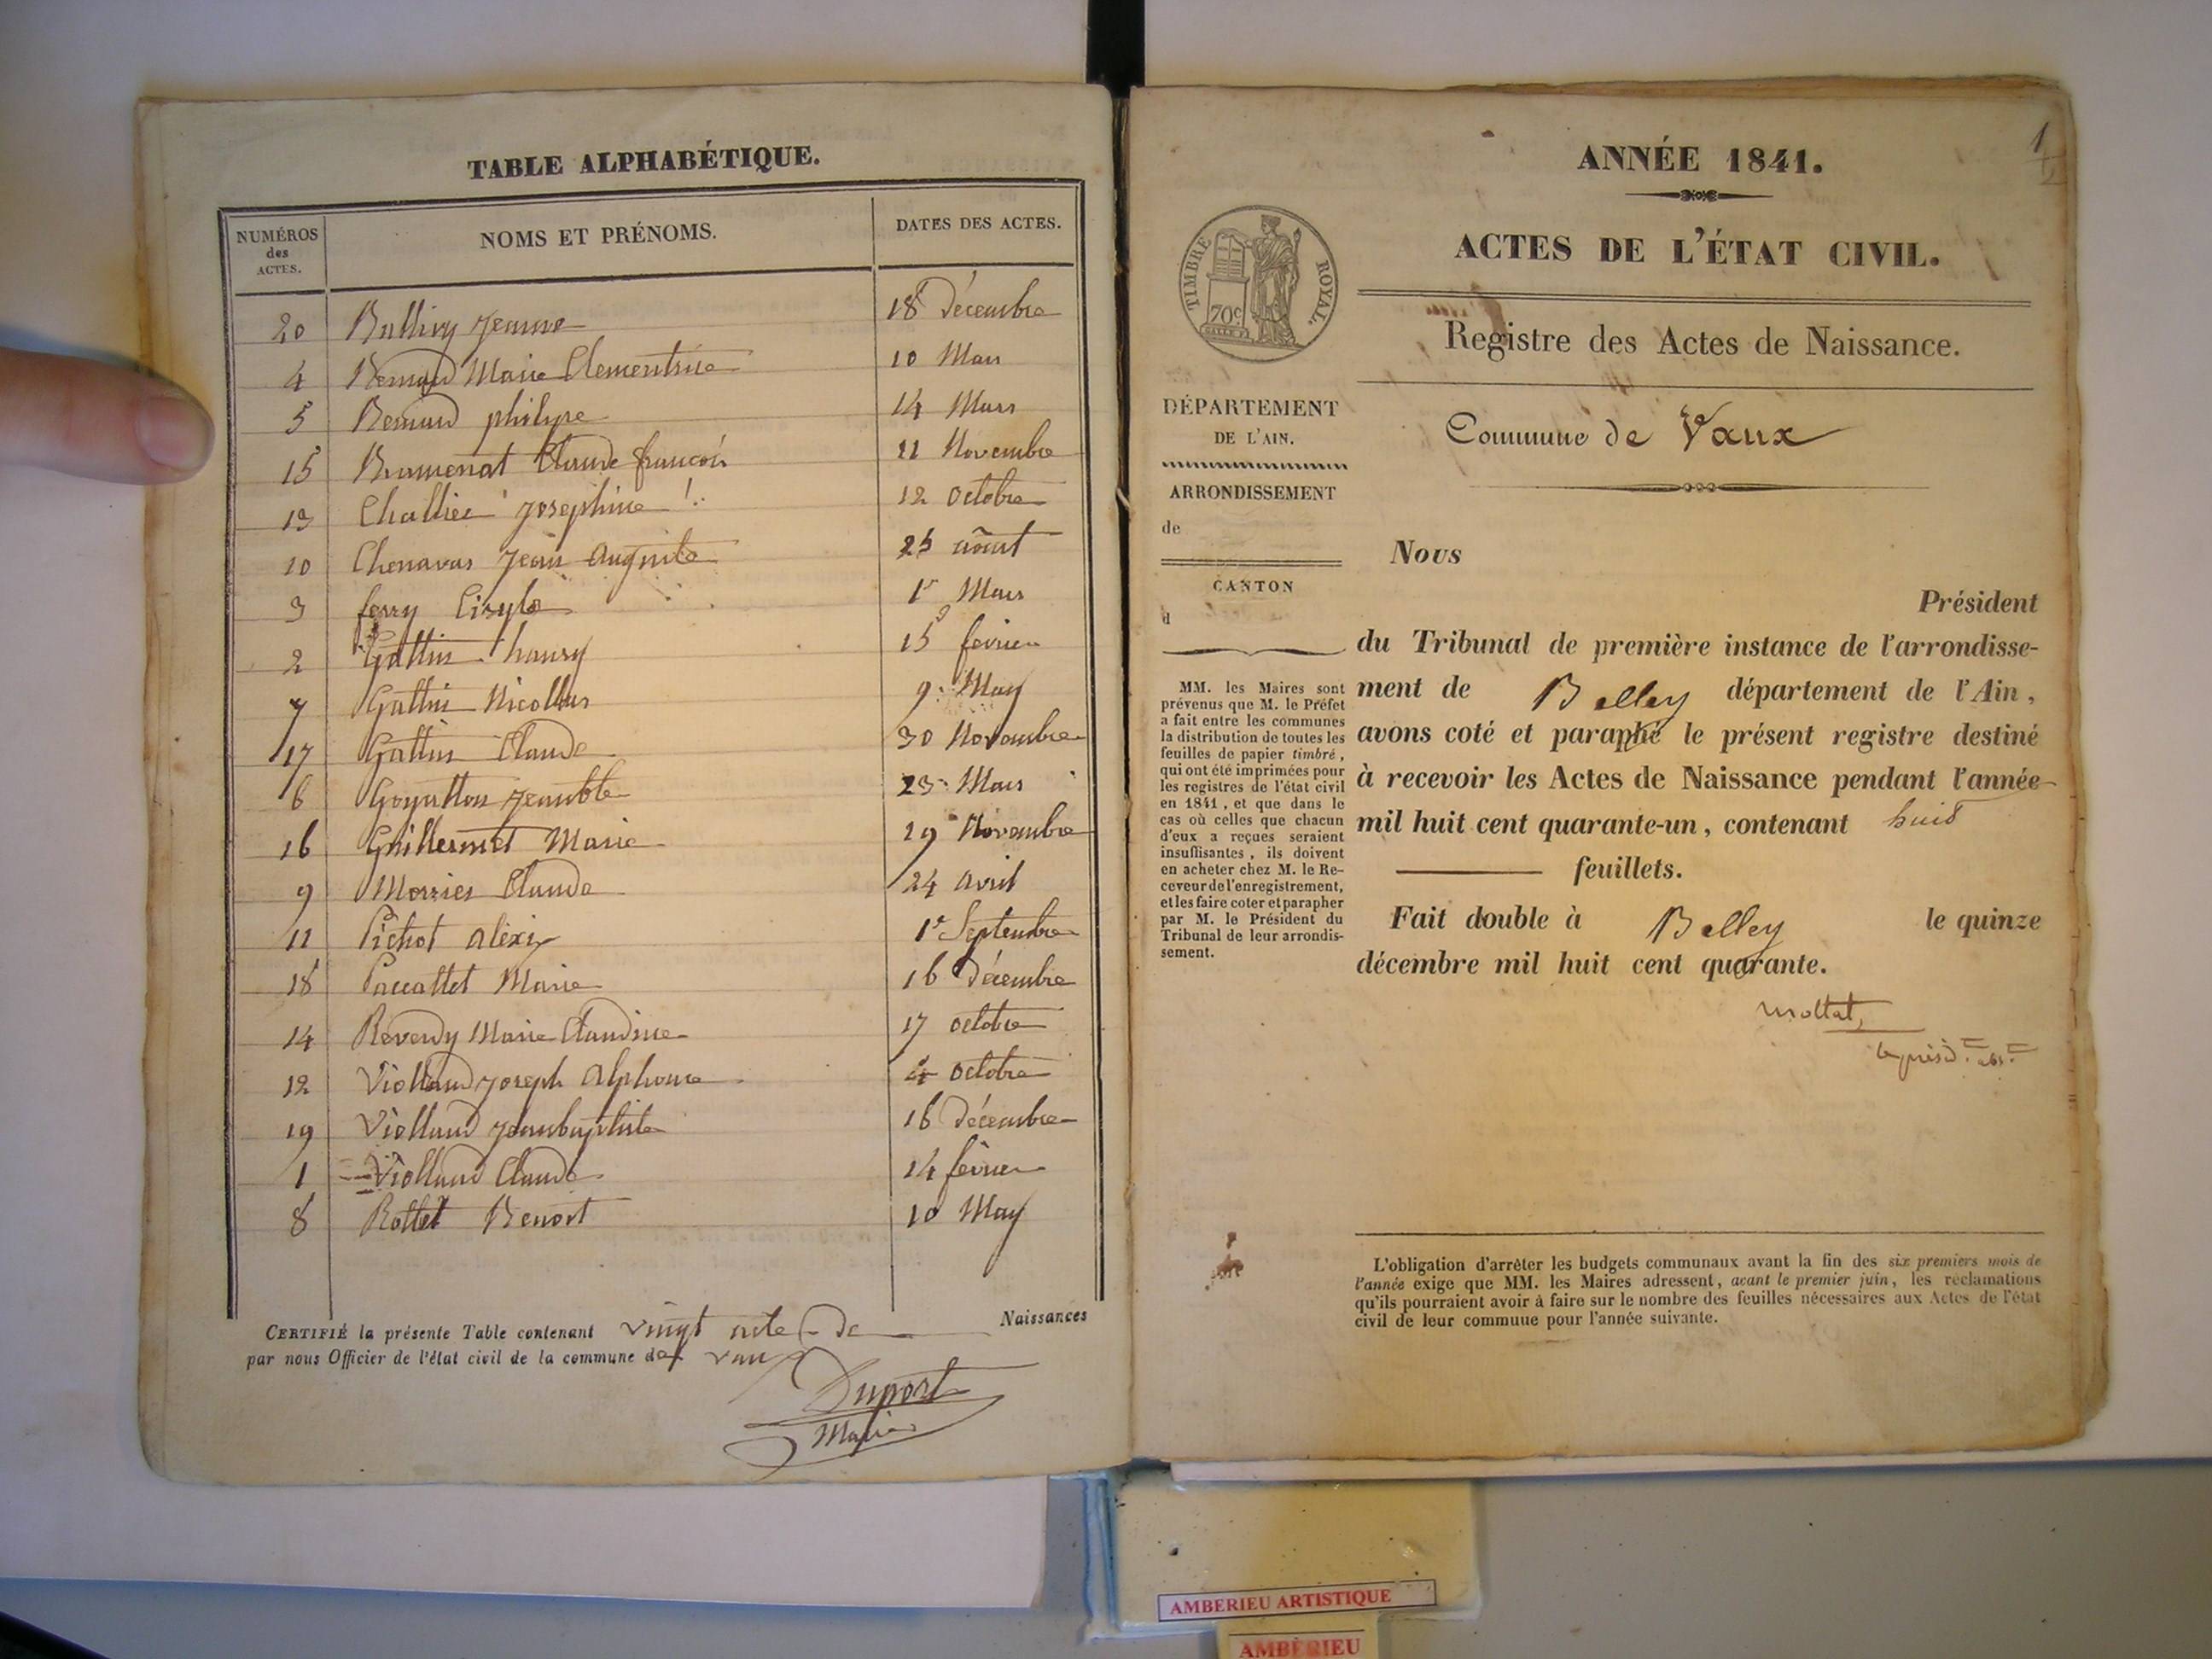 TABLE ALPHABÉTIQUE.
NUMÉROS des ACTES. NOMS ET PRÉNOMS. DATES DES ACTES.
20 Jeanne 18 Décembre
4 Bernard Marie Clementine 10 Mars
5 Bernard philipe 14 Mars
15 Claude françois 11 Novembre
13 Josephine 12 octobre
10 Chenavas Jean 25 août
3 ferry 1r Mars
2 Gallin 15 fevrier
7 Gallin Nicollas 9 May
17 Gallin Claude 30 Novembre
6 23 Mars
16 Guillermet Marie 29 Novembre
9 Claude 24 avril
11 Pichot alexi 1r Septembre
18 Marie 16 décembre
14 Reverdy Marie Claudine 17 octobre
12 Viollaud joseph Alphonse 4 octobre
19 Viollaud jeanbaptiste 16 décembre
1 Viollaud Claude 14 fevrier
8 Benoit 10 May
CERTIFIÉ la présente Table contenant vingt actes de Naissances
par nous Officier de l'état civil de la commune de vaux
Duport
Maire
1
ANNÉE 1841.
ACTES DE L'ÉTAT CIVIL.
TIMBRE ROYAL.
70c
Registre des Actes de Naissance.
DÉPARTEMENT
DE L'AIN.
ARRONDISSEMENT
de
CANTON
d
MM. les Maires sont
prévenus que M. le Préfet
a fait entre les communes
la distribution de toutes les
feuilles de papier timbré,
qui ont été imprimées pour
les registres de l'état civil
en 1841, et que dans le
cas où celles que chacun
d'eux a reçues seraient
insuffisantes, ils doivent
en acheter chez M. le Re-
ceveur de l'enregistrement,
et les faire coter et parapher
par M. le Président du
Tribunal de leur arrondis-
sement.
Commune de Vaux
Nous
Président
du Tribunal de première instance de l'arrondisse-
ment de Belley département de l'Ain,
avons coté et paraphé le présent registre destiné
à recevoir les Actes de Naissance pendant l'année
mil huit cent quarante-un, contenant huit
feuillets.
Fait double à Belley le quinze
décembre mil huit cent quarante.
Mollat,
L'obligation d'arrêter les budgets communaux avant la fin des six premiers mois de
l'année exige que MM. les Maires adressent, avant le premier juin, les réclamations
qu'ils pourraient avoir à faire sur le nombre des feuilles nécessaires aux Actes de l'état
civil de leur commune pour l'année suivante.
AMBERIEU ARTISTIQUE
AMBÉRIEU